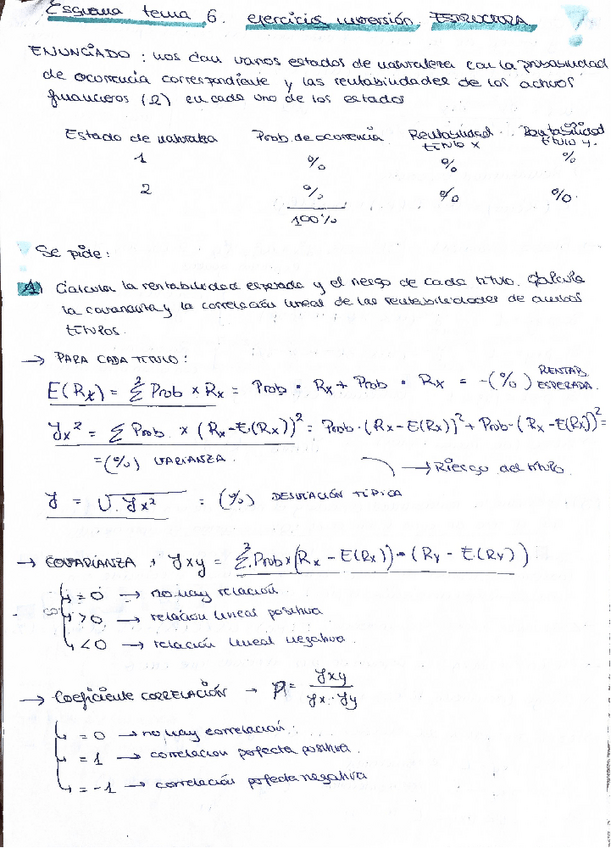 Esquema tema 6. ejercicios inversión. ESTRUCTURA
ENUNCIADO: nos dan varios estados de naturaleza con la probabilidad
de ocurrencia correspondiente y las rentabilidades de los activos
financieros (2) en cada uno de los estados
Estado de naturaleza Prob. de ocurrencia Rentabilidad título x Rentabilidad título y.
1 % % %
2 % % %.
100%
Se pide:
1) Calcular la rentabilidad esperada y el riesgo de cada título. Calcule
la covarianza y la correlación lineal de las rentabilidades de ambos
títulos.
→ PARA CADA TITULO:
E(Rx) = Σ² Prob x Rx = Prob • Rx + Prob • Rx = -(%) RENTAB. ESPERADA.
γx² = Σ Prob x (Rx-E(Rx))² = Prob·(Rx-E(Rx))² + Prob·(Rx-E(Rx))² =
=(%) VARIANZA.
→ Riesgo del título.
γ = √γx² = (%) DESVIACIÓN TÍPICA
→ COVARIANZA, γxy = Σ² Prob x (Rx - E(Rx)) • (Ry - E(Ry))
= 0 → no hay relación
> 0 → relación lineal positiva
< 0 → relación lineal negativa.
→ Coeficiente CORRELACIÓN → ρ = γxy / γx·γy
= 0 → no hay correlación.
= 1 → correlación perfecta positiva.
= -1 → correlación perfecta negativa